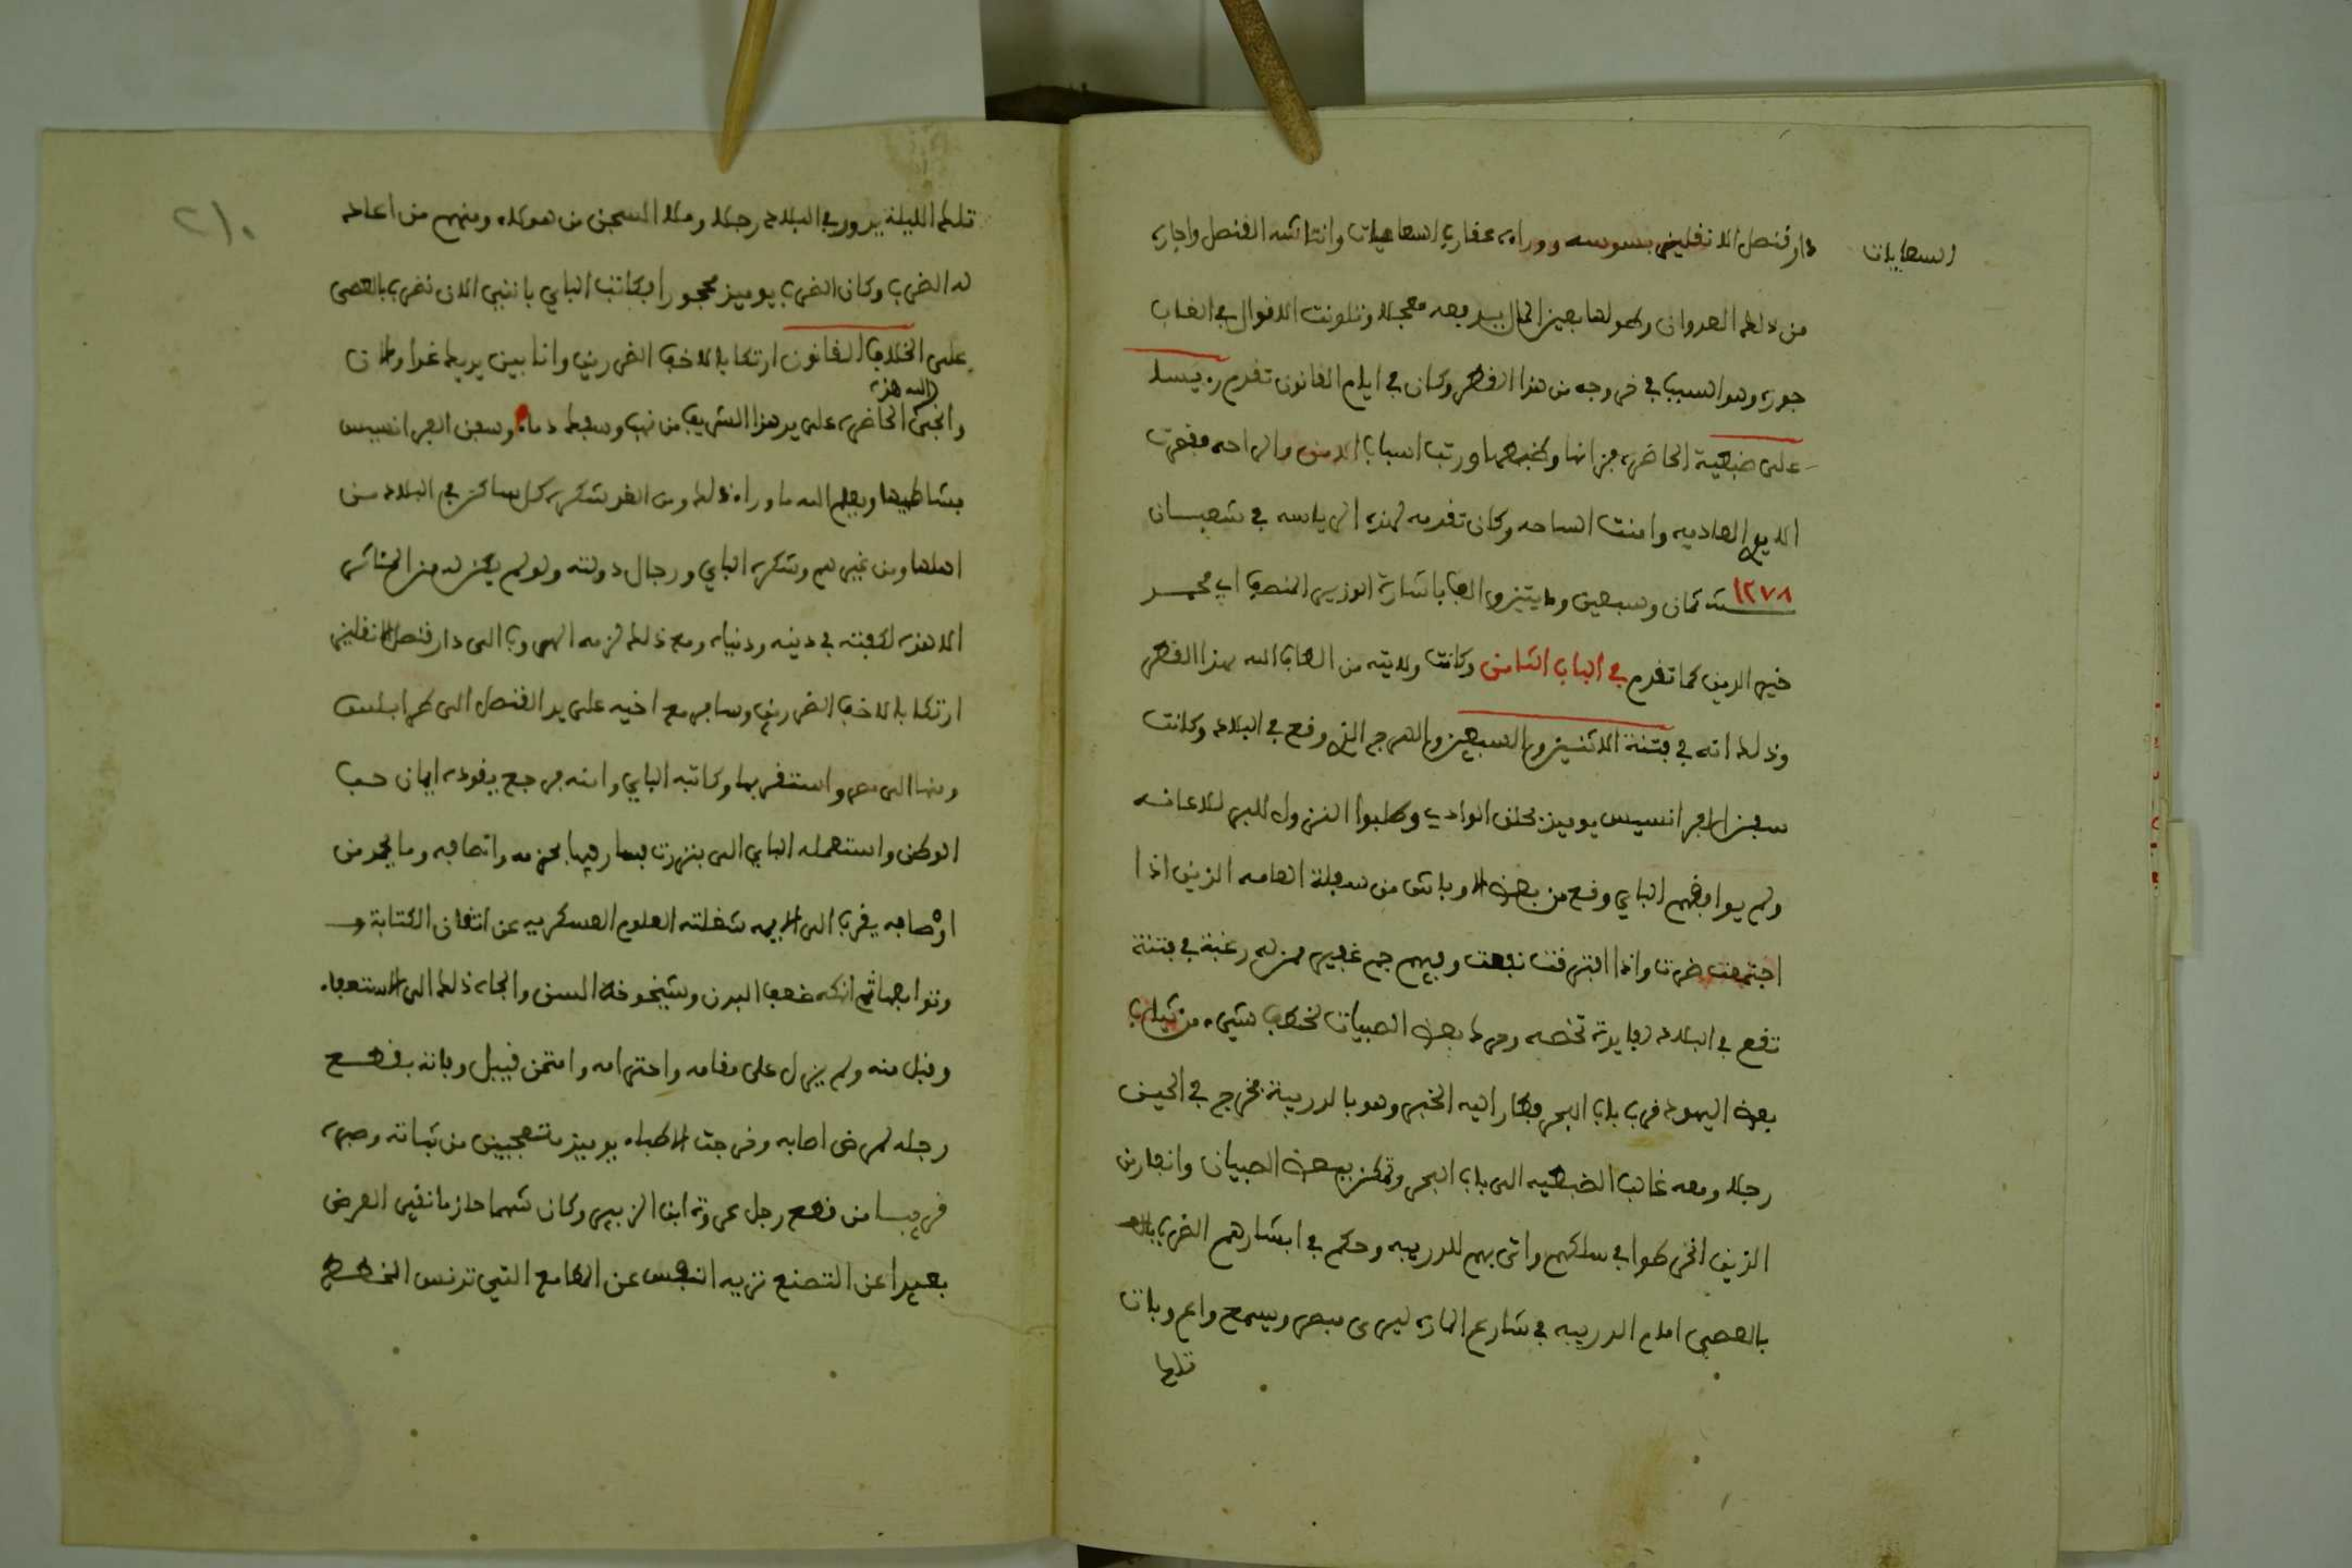 السعايات
دار قنصل الانقليز بسوسه ووراءه عقارب السعايات وانتاشه القنصل واجاره
من ذلك العدوان وطولها بعين المال يدفعه معجلا وتلونت الاقوال في الغاب
جوره وهو السبب في خروجه من هذا القطر وكان في ايام القانون تقدم رءيسا
على ضبطية الحاضره فزانها وضبطها ورتب اسباب الامن والراحه فقصرت
الايدي العاديه وامنت الساحه وكان تقدمه لهذه الرياسه في شعبان
سنة ١٢٧٨ ثمان وسبعين ومايتين والف باشارة الوزير المنصف ابي محمد
خير الدين كما تقدم في الباب الثامن وكانت ولايته من الطاف الله بهذا القطر
وذلك انه في فتنة الاثنين والسبعين والهرج الذي وقع في البلاد وكانت
سفن الفرانسيس يوميذ بحلق الوادي وطلبوا النزول للبر للاعانه
ولم يوافقهم الباي وقع من بعض الاوباش من سفلة العامه الذين اذا
اجتمعت ضرت واذا افترقت نفعت وفيهم جم غفير ممن له رغبة في فتنة
تقع في البلاد لفايدة تخصه ومد بعض الصبيان لخطف شيء من ثياب
بعض اليهود قرب باب البحر فطار اليه الخبر وهو بالدريبة فخرج في الحين
رجلا ومعه غالب الضبطيه الى باب البحر وتمكن ببعض الصبيان والفارين
الذين انخرطوا في سلكهم واتى بهم للدريبه وحكم في ابشارهم الضرب
بالعصي امام الدريبه في شارع الماره ليرى مبصر ويسمع واع وبات
تلك
٢١٠
تلك الليلة يدور في البلاد رجلا وملا السجن من هولاء ومنهم من اعاد
له الضرب وكان الضرب يوميذ محجورا فكاتب الباي بانني الان نضرب بالعصى
على خلاف القانون ارتكابا لاخف الضررين وانا بين يديك غدا وان
وانجى الله هذه الحاضره على يد هذا الشريف من نهب وسفك دماء وسفن الفرانسيس
بشاطيها ويعلم الله ما وراء ذلك ومن الغد شكره كل ساكن في البلاد من
اهلها ومن غيرهم وشكره الباي ورجال دولته ولو لم يكن له من الماثر
الا هذه لكفته في دينه ودنياه ومع ذلك لزمه الهروب الى دار قنصل الانقليز
ارتكابا لاخف الضررين وسافر مع اخيه على يد القنصل الى طرابلس
ومنها الى مصر واستقر بها وكاتبه الباي وامنه فرجع يقوده ايمان حب
الوطن واستعمله الباي الى بنزرت فسار فيها بحزمه وانصافه وما يحمد من
اوصافه يقرب الى الاميه شغلته العلوم العسكريه عن اتقان الكتابة
وتوابعها ثم انهكه ضعف البدن وشيخوخة السن والجاه ذلك الى الاستعفاء
وقبل منه ولم يزل على مقامه واحترامه وامتحن قبيل وفاته بقطع
رجله لمرض اصابه وخرجت الاطباء يوميذ متعجبين من ثباته وصبره
قريبا من قطع رجل عروة ابن الزبير وكان شهما حازما نقي العرض
بعيدا عن التصنع نزيه النفس عن المطامع التي تدنس الخطط